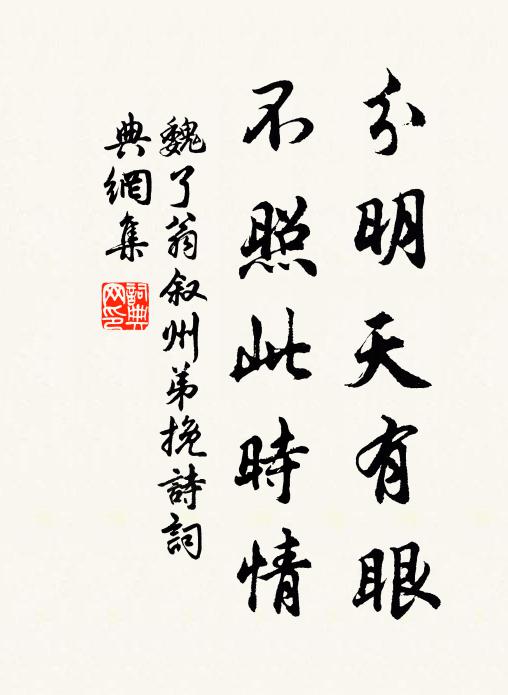 分明天有眼
不照此時情
魏了翁叙州弟挽詩詞
典網集
詞典网印